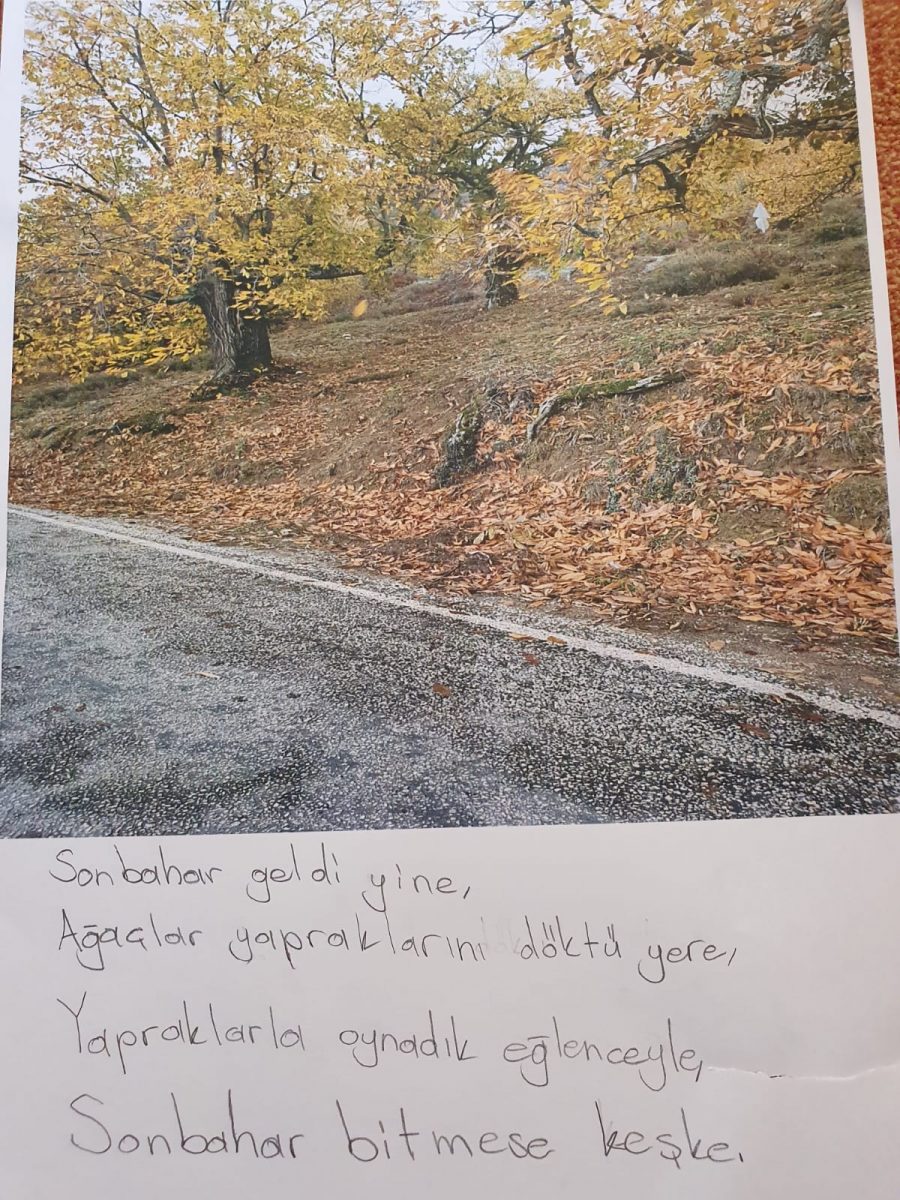 Sonbahar geldi yine,
Ağaçlar yapraklarını döktü yere,
Yapraklarla oynadık eğlenceyle,
Sonbahar bitmese keşke.